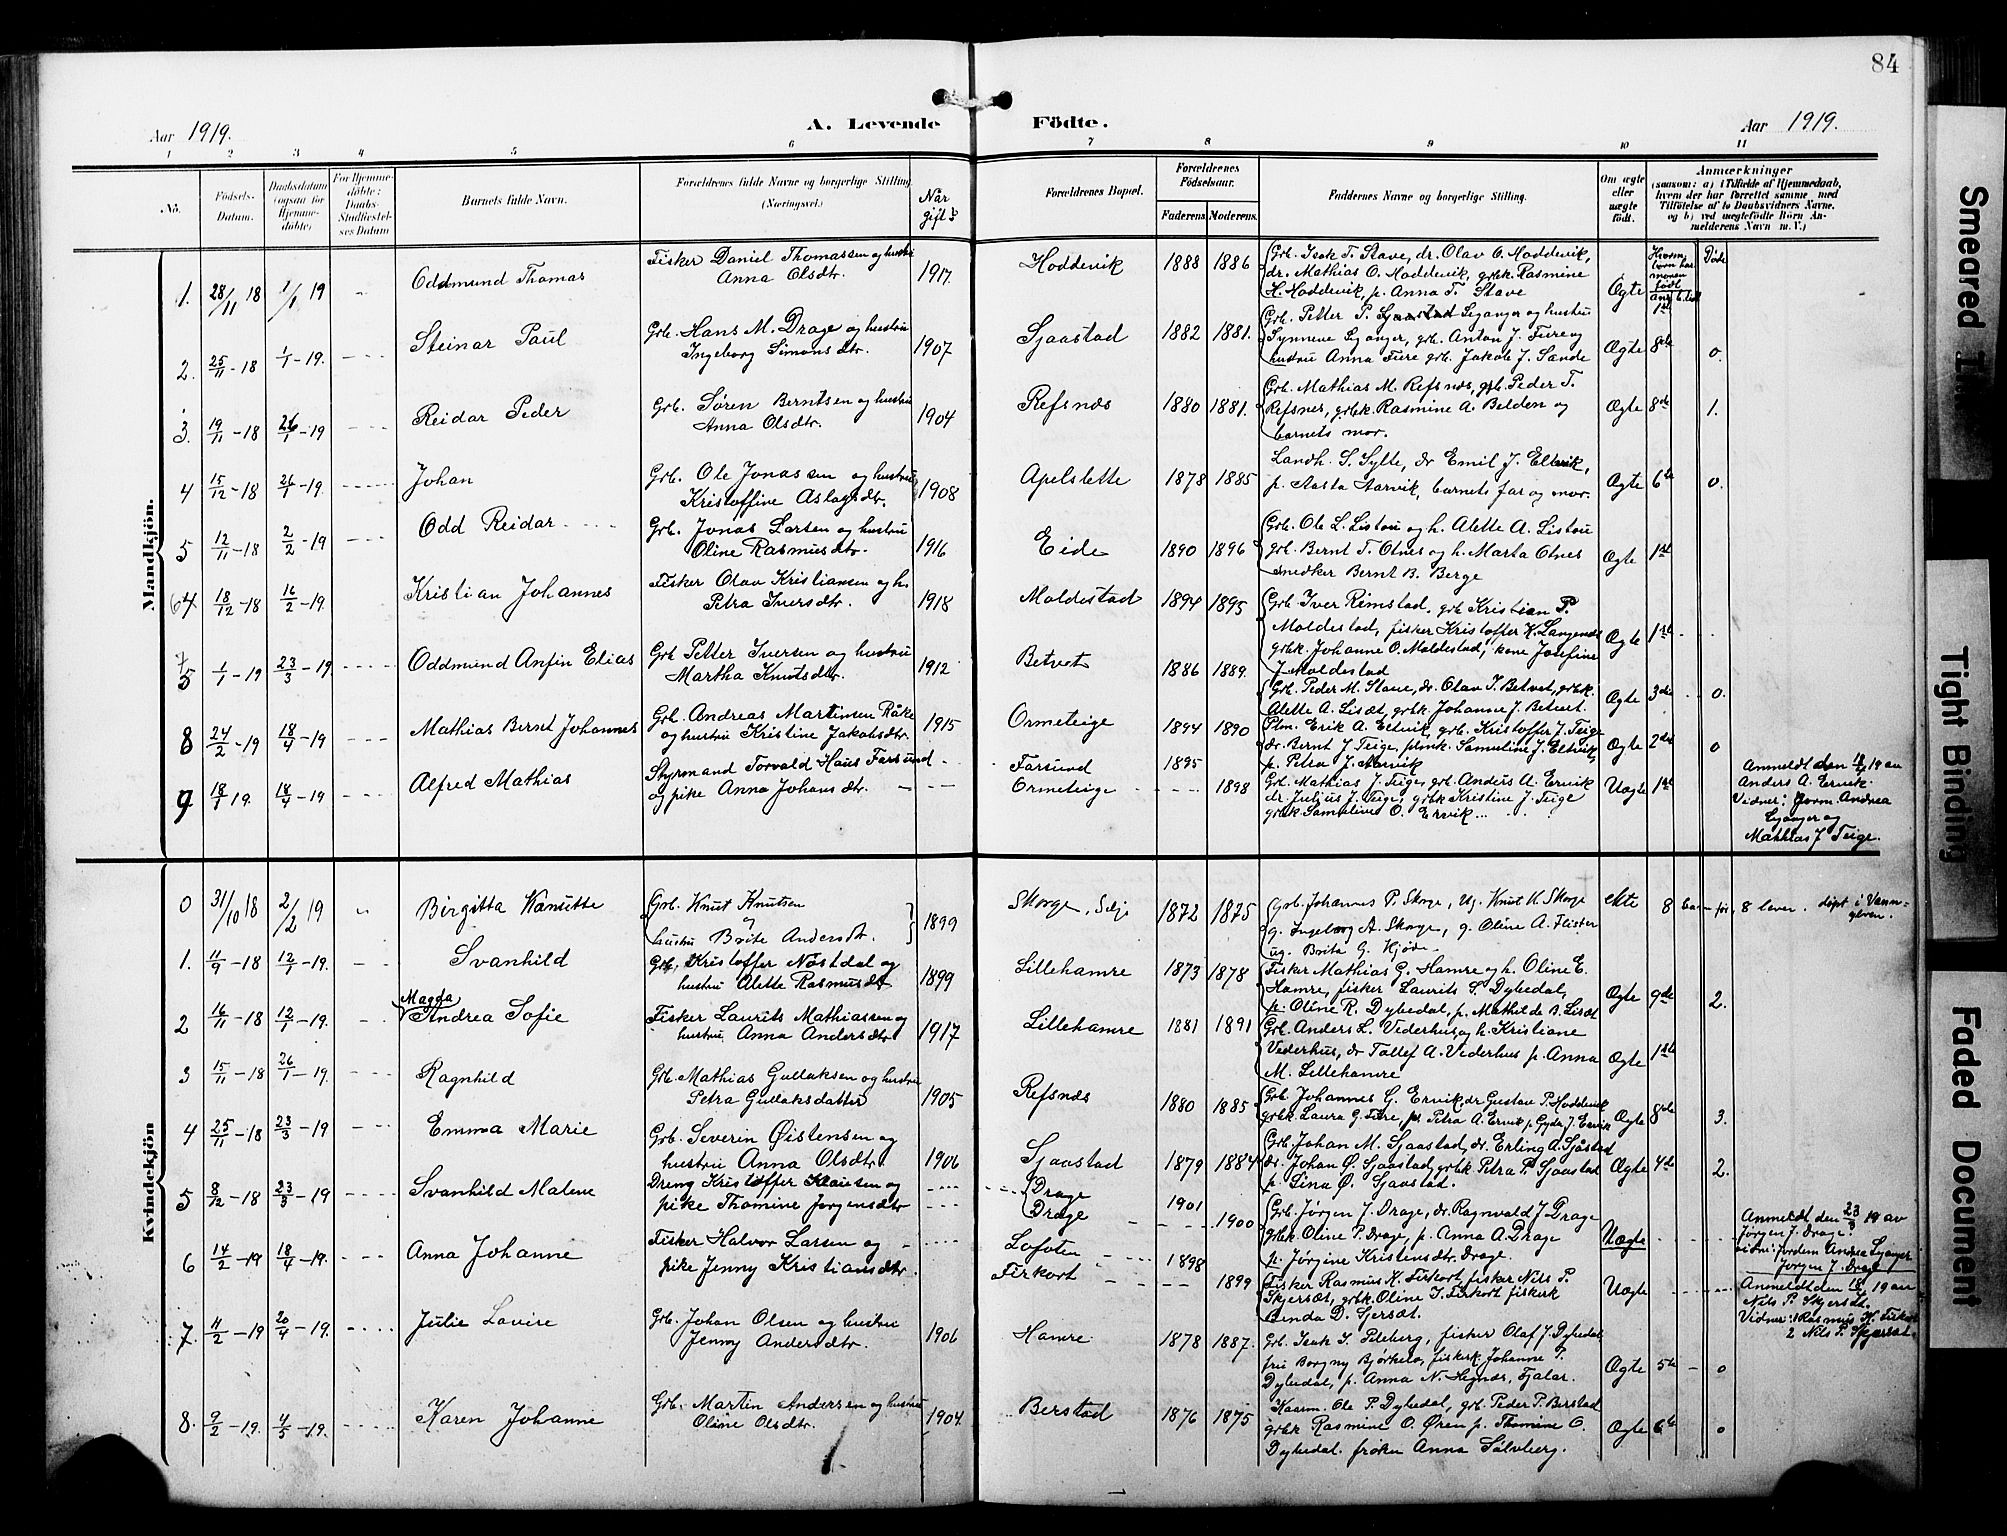 84
Aar 1919.
A. Levende Födte.
Aar 1919.
1 2 3 4 5 6 7 8 9 10 11
No.
Födsels-
Datum.
Daabsdatum
(ogsaa for
Hjemme-
döbte)
For Hjemme-
döbte:
Daabs-
Stadfæstel-
ses Datum
Barnets fulde Navn.
Forældrenes fulde Navne og borgerlige Stilling
(Næringsvei.)
Når
gift?
Forældrenes Bopæl.
Forældrenes
Födselsaar.
Faderens. Moderens.
Faddernes Navne og borgerlige Stilling.
Om ægte
eller
uægte
födt.
Anmærkninger
(saasom: a) i Tilfælde af Hjemmedaab,
hvem der har forrettet samme, med
Tilföielse af to Daabsvidners Navne,
og b) ved uægtefödte Börn An-
melderens Navn m. V.)
Mandkjön.
1. 28/11 18 1/1 19 Oddmund Thomas
Fisker Daniel Thomassen og hustru
Anna Olsdtr. 1917
Hoddevik 1888 1886
Grb. Isak T. Stave, dr. Olav O. Hoddevik,
dr. Mathias O. Hoddevik, grbk. Rasmine
H. Hoddevik, p. Anna T. Stave
Ægte 1ste
Døde
2. 25/11-18 1/1-19. Steinar Paul
Grb. Hans M. Drage og hustru
Ingeborg Simonsdtr. 1907
Sjaastad 1882 1881.
Grb. Petter P. Sjaastad Liganger og hustru
Synneve Liganger, grb. Anton J. Fure og
hustru Anna Fure grb. Jakob J. Sande
Ægte 8de 0.
3. 19/11-18 26/1-19 Reidar Peder
Grb. Søren Berntsen og hustru
Anna Olsdtr. 1904
Refsnes 1880 1881.
Grb. Mathias M. Refsnes, grb. Peder T.
Refsnes, grbk. Rasmine A. Belden og
barnets mor.
Ægte 8de 1.
4 15/12-18 26/1-19. Johan
Grb. Ole Jonassen og hustru
Kristoffine Aslagsdtr. 1908
Apelslette 1878 1885
Landh. S. Sylte, dr Emil J. Eltvik,
p. Aasta Aarvik, barnets far og mor.
Ægte 6te 0.
5 12/11-18 2/2-19 Odd Reidar
Grb. Jonas Larsen og hustru
Oline Rasmusdtr. 1916
Eide 1890 1896
Grb. Ole L. Listou og h. Alette A. Listou
grb. Bernt T. Otnes og h. Marta Otnes
snedker Bernt B. Berge
Ægte 1ste
6 18/12-18 16/2-19. Kristian Johannes
Fisker Olav Kristiansen og h.
Petra Iversdtr. 1918
Moldestad 1894 1895
Grb. Iver Rimstad, grb Kristian P.
Moldestad, fisker Kristoffer K. Langenes
grbk. Johanne O. Moldestad, kone Josefine
J. Moldestad
Ægte 1ste
5 1/1-19 23/3-19 Oddmund Anfin Elias
Grb Petter Iversen og hustru
Martha Knutsdtr. 1912
Betvet 1886 1889.
Grb. Peder M. Stave, dr. Olav I. Betvet, grbk.
Alette A. Lisæt, grbk. Johanne J. Betvet.
Ægte 3die 0.
8 24/2-19 18/4-19 Mathias Bernt Johannes
Grb. Andreas Martinsen Råke
og hustru Kristine Jakobsdtr. 1915
Ormeteige 1894 1890
Plm. Erik A. Eltvik, grb. Kristoffer J. Teige
dr. Bernt J. Teige, plmk. Samuline J. Eltvik,
p. Petra J. Aarvik
Ægte 2den 0
9 18/1 19. 18/4-19 Alfred Mathias
Styrmand Torvald Hans Farsund
og pike Anna Johansdtr.
Farsund 1895
Ormeteige 1898
Grb. Mathias J. Teige, grb. Anders A. Ervik
dr. Julius J. Teige, grbk Kristine J. Teige
grbk. Samuline O. Ervik
Uægte 1ste
Anmeldt den 19 av
Anders A. Ervik.
Vidner: Jorm. Andrea
Liganger og
Mathias J. Teige.
Kvindekjön
0 31/10 18 2/2 19 Birgitta Kanutte
Grb. Knut Knutsen
og
hustru Brite Andersdtr. 1899
Skorge, Selje 1872 1875
Grb. Johannes P. Skorge, Ug. Knut K. Skorge
g. Ingeborg A. Skorge, g. Oline A. Flister
ug. Brita G. Hjøde
ekte 8 bar før, 8 lever. døpt i
1. 11/9-18 12/1-19. Svanhild
Grb. Kristoffer Nøstdal og
hustru Alette Rasmusdtr 1899
Lillehamre 1873 1878
Fisker Mathias G. Hamre og h. Oline E.
Hamre, fisker Laurits S. Dybedal,
p. Oline R. Dybedal, p. Mathilde B. Lisæt
Ægte 9de 2.
2 16/11-18 12/1-19. Magda Andrea Sofie
Fisker Laurits Mathiassen og
hustru Anna Andersdtr 1917
Lillehamre 1881 1891
Grb. Anders L. Vederhus, og h. Kristiane
Vederhus, dr Tollef A. Vederhus p. Anna
M. Lillehamre
Ægte 1ste
3 15/11-18 26/1-19. Ragnhild
Grb. Mathias Gullaksen og hustru
Petra Gullaksdatter 1905
Refsnes 1880 1885
Grb. Johannes G. Ervik dr Gustav P. Hoddevik
grbk. Laura G. Fure, p. Petra A. Ervik p. Gyda J. Ervik
Ægte 8de 3.
4 25/11-18 23/3-19 Emma Marie
Grb. Severin Øistensen og
hustru Anna Olsdtr. 1906
Sjaastad 1879 1884
Grb. Johan M. Sjaastad, dr. Erling A. Sjåstad
dr. Johan Ø. Sjaastad, grbk Petra P. Sjaastad
p. Lina Ø. Sjaastad.
Ægte 4de 2.
5 8/12-18 23/3-19 Svanhild Malene
Dreng Kristoffer Klausen og
pike Thomine Jørgensdtr
Drage 1901
Drage 1900
Grb. Jørgen J. Drage, dr. Ragnvald J Drage
grbk. Oline P. Drage, p. Anna A. Drage
p. Jørgine Kristensdtr. Drage.
Uægte
Anmeldt den 23/3 19 av
Jørgen J. Drage.
vidne: Jordem Andrea Liganger
Jørgen J. Drage
6 14/2-19 18/4-19. Anna Johanne
Fisker Halvor Larsen og
pike Jenny Kristiansdtr.
Lofoten 1898
Firkort 1899
Fisker Rasmus K. Firkort, fisker Nils P.
Skjersæt, grbk. Oline I. Firkort fiskerk
Benda D. Sjersæt.
Uægte
Anmeldt den 18/4 19 av
Nils P. Skjersæt.
Vidner: 1 Rasmus K. Firkort
2 Nils P. Skjersæt.
7. 11/2-19 20/4-19. Julie Lovise
Grb. Johan Olsen og hustru
Jenny Andersdtr. 1906
Hamre 1878 1887.
Grb. Isak I. Pileberg, fisker Olaf J. Dybedal
fru Borgny Bjørkelo, fiskerk. Johanne P.
Dybedal, p. Anna N. Hegnæs, Fjalar.
Ægte 5te 0
8. 9/2-19. 4/5-19. Karen Johanne
Grb. Martin Andersen og hustru
Oline Olsdtr. 1904.
Berstad 1876 1875
Kaarm. Ole P. Dybedal, grb. Peder P. Berstad
grbk Rasmine O. Øren p. Thomine O.
Dybedal. frøken Anna Sølvberg.
Ægte 6te 0
Smeared Ink
Tight Binding
Faded Document